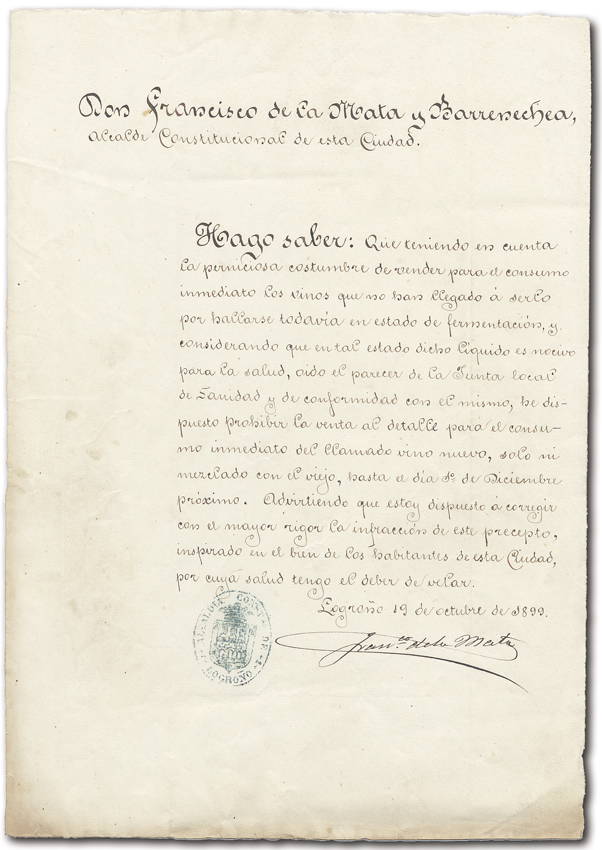 Don Francisco de la Mata y Barrenechea,
Alcalde Constitucional de esta Ciudad.
Hago saber: Que teniendo en cuenta
la perniciosa costumbre de vender para el consumo
inmediato los vinos que no han llegado á serlo
por hallarse todavía en estado de fermentación, y
considerando que en tal estado dicho líquido es nocivo
para la salud, oido el parecer de la Junta local
de Sanidad y de conformidad con el mismo, he dis-
puesto prohibir la venta al detalle para el consu-
mo inmediato del llamado vino nuevo, solo ni
mezclado con el viejo, hasta el día 1º de Diciembre
próximo. Advirtiendo que estoy dispuesto á corregir
con el mayor rigor la infracción de este precepto,
inspirado en el bien de los habitantes de esta Ciudad,
por cuya salud tengo el deber de velar.
Logroño 19 de octubre de 1899.
Fran.co de la Mata
ALCALDIA CONST
LOGROÑO